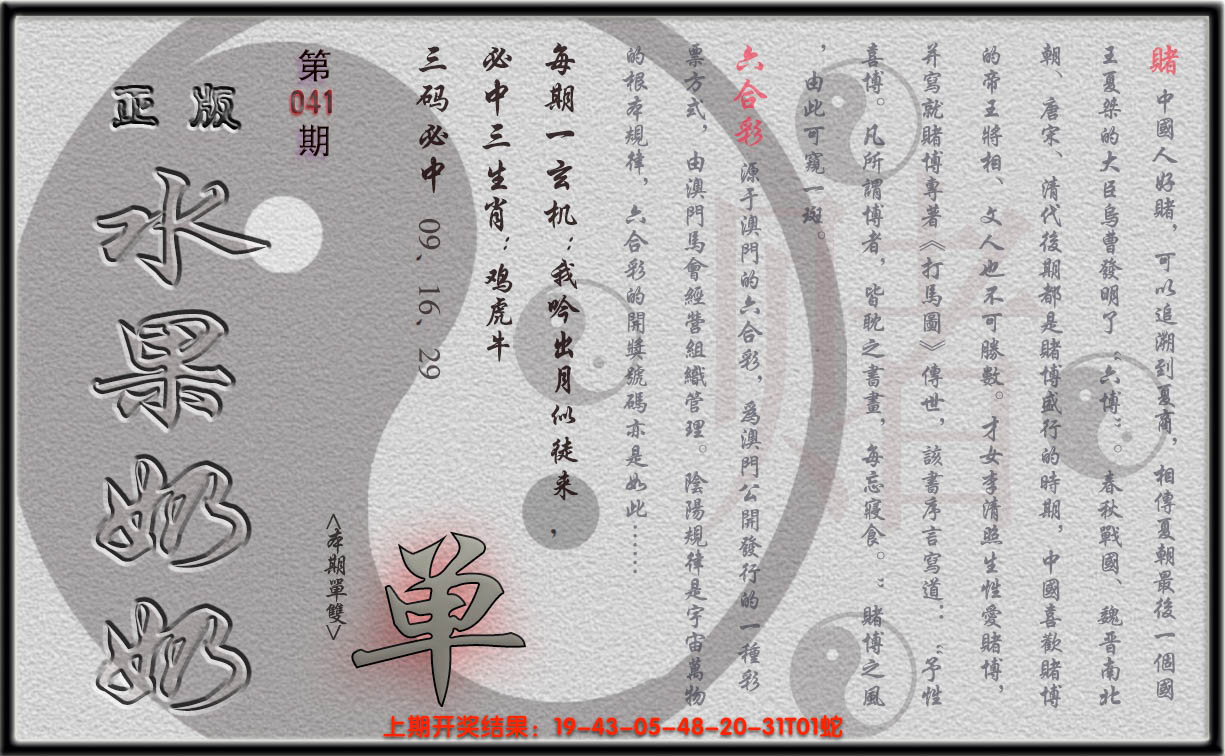 賭 中國人好賭，可以追溯到夏商，相傳夏朝最後一個國
王夏桀的大臣烏曹發明了“六博”。春秋戰國、魏晋南北
朝、唐宋、清代後期都是賭博盛行的時期，中國喜歡賭博
的帝王將相、文人也不可勝數。才女李清照生性愛賭博，
并寫就賭博專著《打馬圖》傳世，該書序言寫道：“予性
喜博。凡所謂博者，皆耽之書畫，每忘寢食。”賭博之風
，由此可窺一斑。
六合彩 源于澳門的六合彩，爲澳門公開發行的一種彩
票方式，由澳門馬會經營組織管理。陰陽規律是宇宙萬物
的根本規律，六合彩的開獎號碼亦是如此……
每期一玄机：我吟出月似徒来，
必中三生肖：鸡虎牛
三码必中 09、16、29
第
041
期
正版
水果奶奶
<本期單雙>
单
赌
上期开奖结果：19-43-05-48-20-31T01蛇